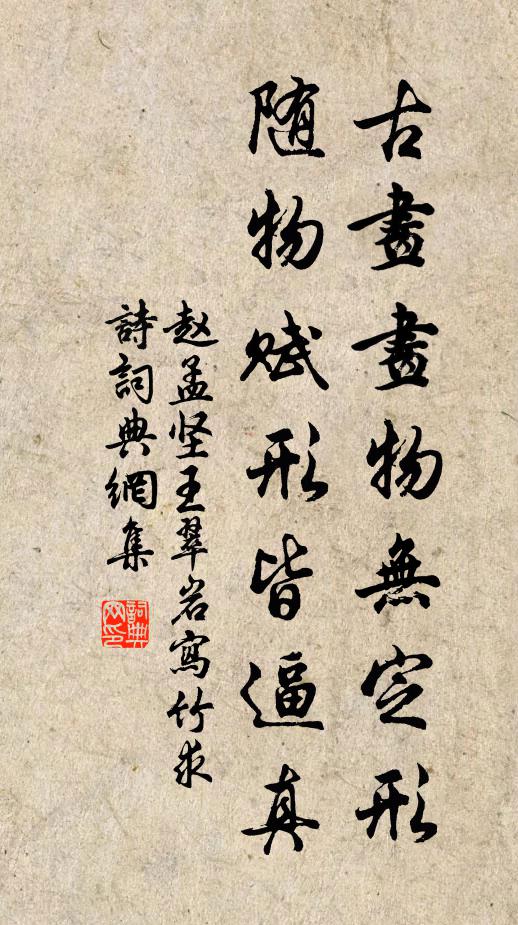 古畫畫物無定形
随物赋形皆逼真
赵孟坚王翠岩寫竹求
詩詞典網集
詞典網印